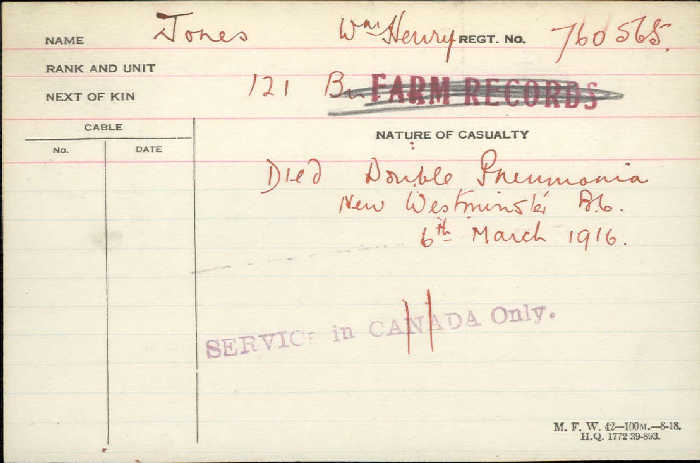 NAME Jones Wm Henry REGT. No. 760565.
RANK AND UNIT
NEXT OF KIN 121 Bn FARM RECORDS
CABLE
No. DATE
NATURE OF CASUALTY
Died Double Pneumonia
New Westminster B.C.
6th March 1916.
SERVICE in CANADA Only.
M. F. W. 42—100M.—8-18.
H.Q. 1772 39-893.